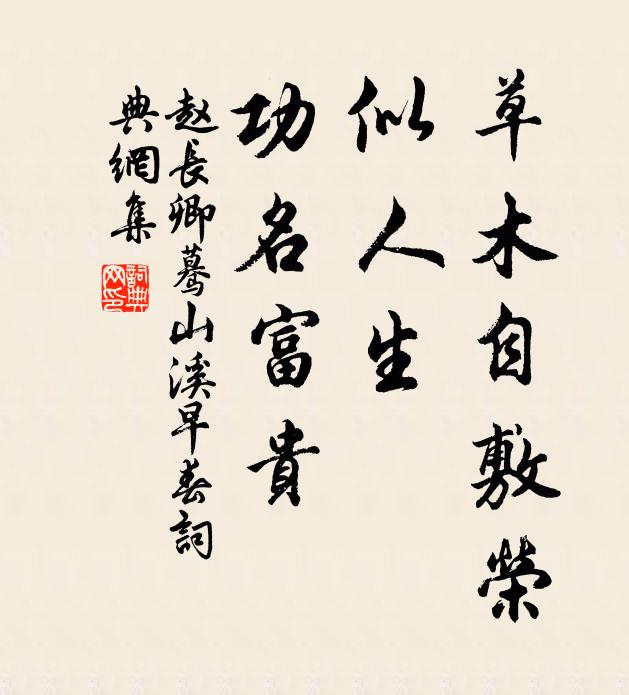 草木自敷榮
似人生
功名富貴
赵長卿驀山溪早春詞
典網集
詞典網印